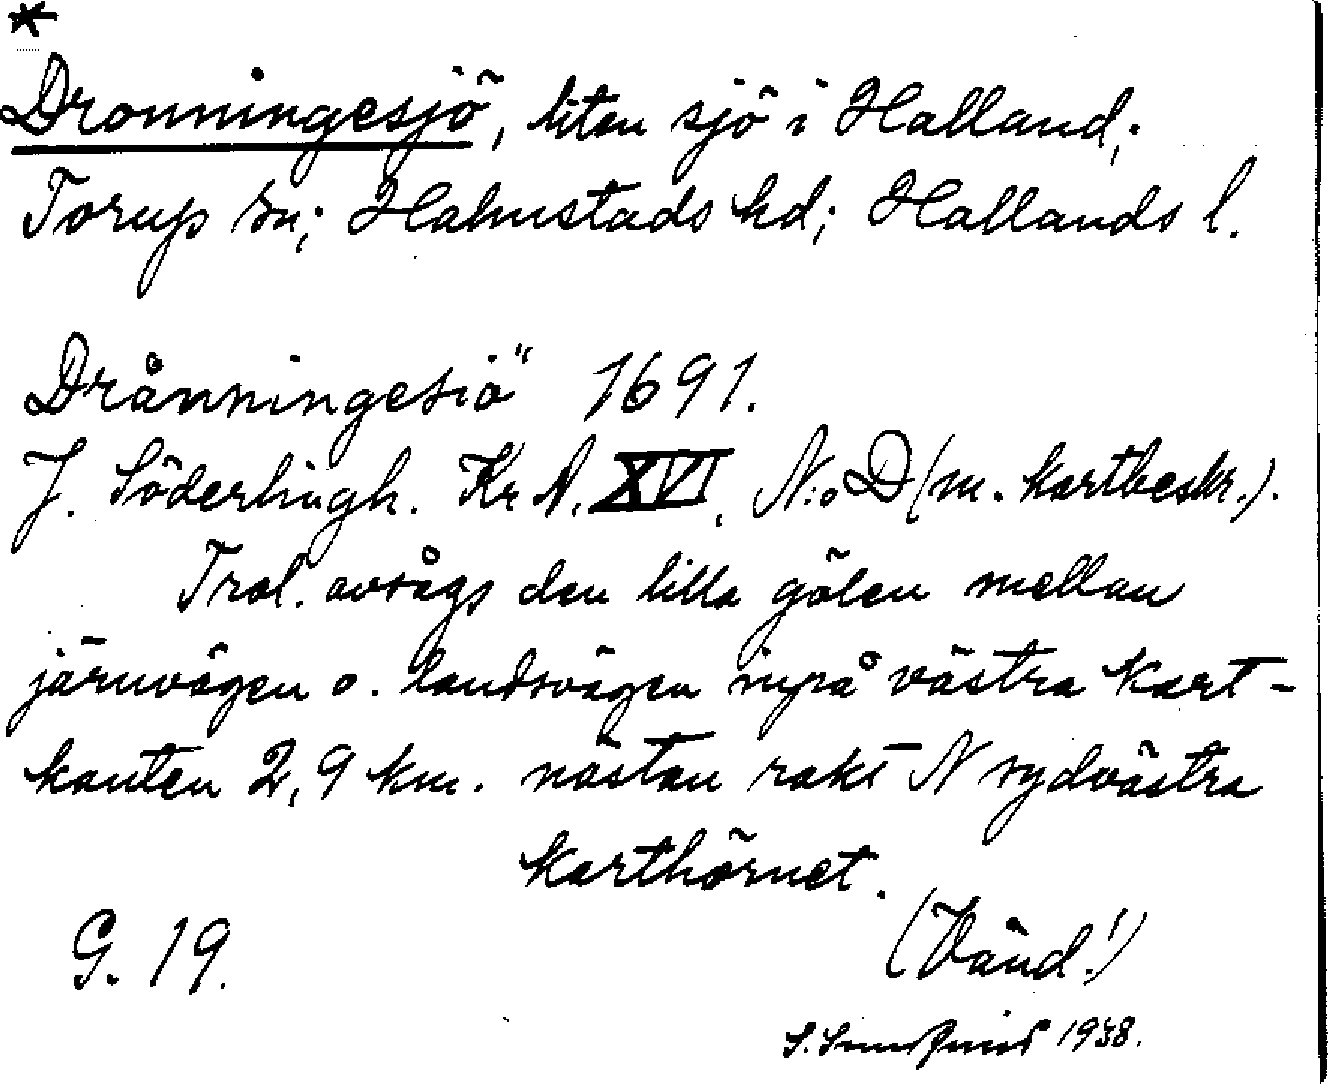 *
Dronningesjö, liten sjö i Halland;
Torup sn; Halmstads hd; Hallands l.
Drånningesiö 1691.
J. Söderlingh. Kr A. XVI, N:o D (m. kartbeskr.).
Trol. avsågs den lilla gölen mellan
järnvägen o. landsvägen inpå västra kart-
kanten 2,9 km. nästan rakt N sydvästra
karthörnet.
G. 19.
(Vänd!)
S. 1938.